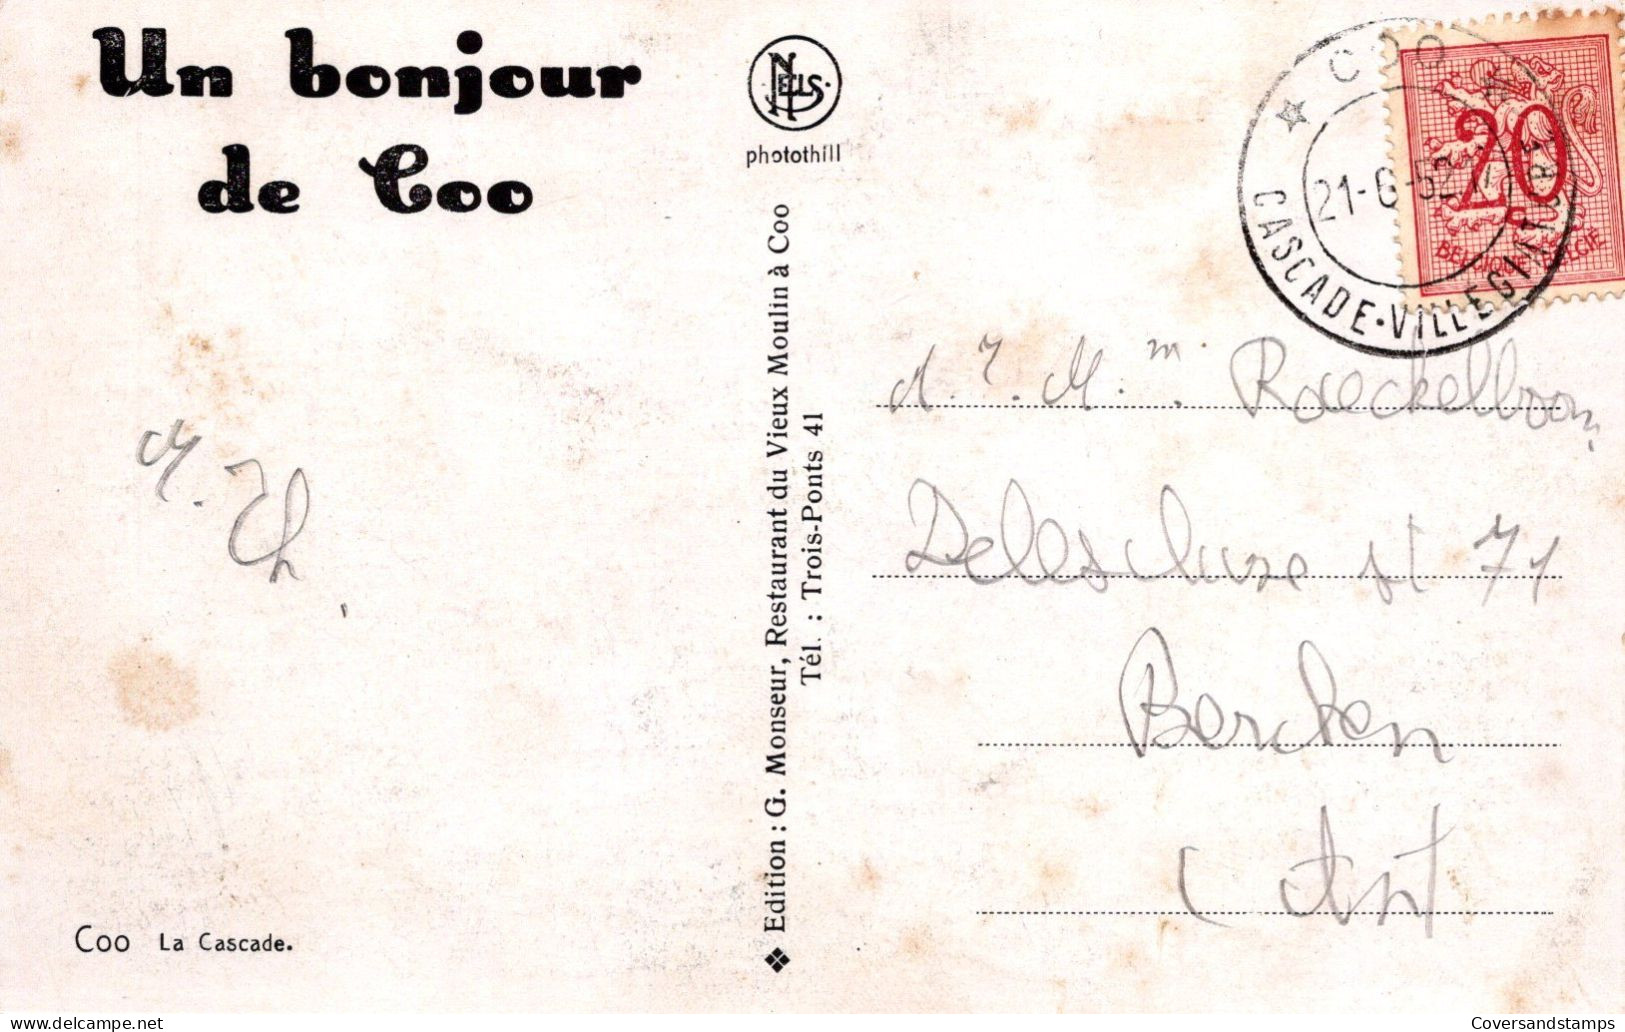 Un bonjour
de Coo
NELS.
photothill
❖ Edition : G. Monseur, Restaurant du Vieux Moulin à Coo
Tél. : Trois-Ponts 41
COO
21-6-52
CASCADE-VILLEGIATURE
20
BELGIQUE-BELGIE
Raeckelboom
Delescluze st 71
Berchen
(Ant
Coo La Cascade.
Coversandstamps